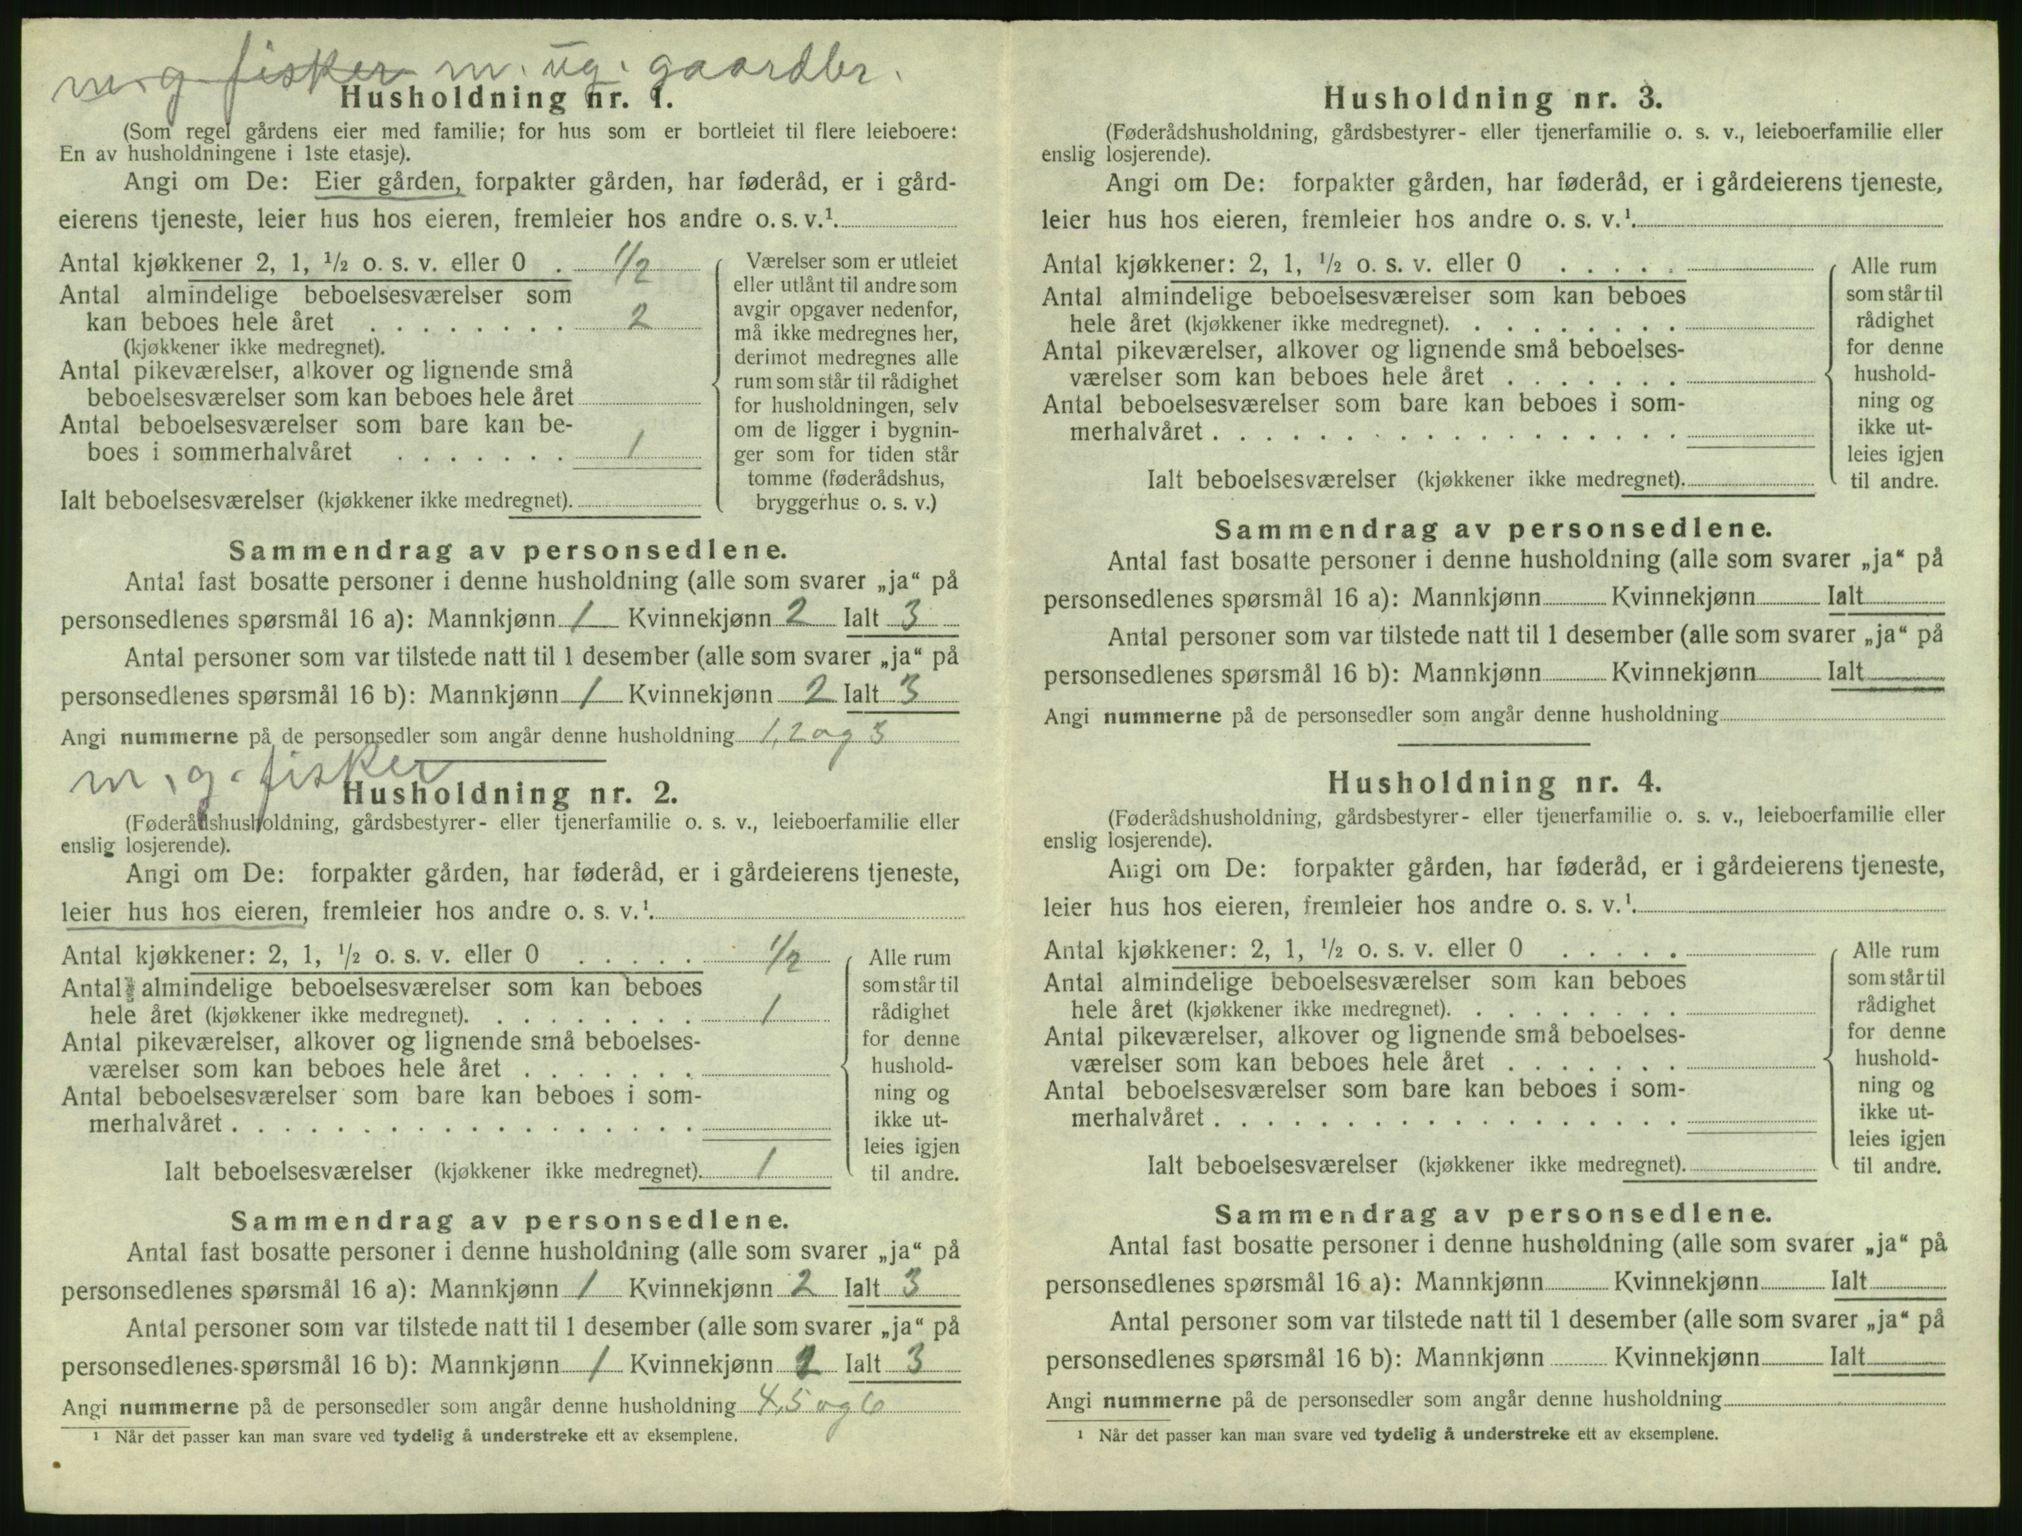 m. g. fisker m. ug. gaardbr.
Husholdning nr. 1.
(Som regel gårdens eier med familie; for hus som er bortleiet til flere leieboere:
En av husholdningene i 1ste etasje).
Angi om De: Eier gården, forpakter gården, har føderåd, er i gård-
eierens tjeneste, leier hus hos eieren, fremleier hos andre o. s. v.¹
Antal kjøkkener 2, 1, ½ o. s. v. eller 0 . 1/2
Antal almindelige beboelsesværelser som
kan beboes hele året . . . . . . . . 2
(kjøkkener ikke medregnet).
Antal pikeværelser, alkover og lignende små
beboelsesværelser som kan beboes hele året
Antal beboelsesværelser som bare kan be-
boes i sommerhalvåret . . . . . . . 1
Ialt beboelsesværelser (kjøkkener ikke medregnet).
Værelser som er utleiet
eller utlånt til andre som
avgir opgaver nedenfor,
må ikke medregnes her,
derimot medregnes alle
rum som står til rådighet
for husholdningen, selv
om de ligger i bygnin-
ger som for tiden står
tomme (føderådshus,
bryggerhus o. s. v.)
Sammendrag av personsedlene.
Antal fast bosatte personer i denne husholdning (alle som svarer „ja“ på
personsedlenes spørsmål 16 a): Mannkjønn 1 Kvinnekjønn 2 Ialt 3
Antal personer som var tilstede natt til 1 desember (alle som svarer „ja“ på
personsedlenes spørsmål 16 b): Mannkjønn 1 Kvinnekjønn 2 Ialt 3
Angi nummerne på de personsedler som angår denne husholdning 1, 2 og 3
m. g. fisker
Husholdning nr. 2.
(Føderådshusholdning, gårdsbestyrer- eller tjenerfamilie o. s. v., leieboerfamilie eller
enslig losjerende).
Angi om De: forpakter gården, har føderåd, er i gårdeierens tjeneste,
leier hus hos eieren, fremleier hos andre o. s. v.¹
Antal kjøkkener: 2, 1, ½ o. s. v. eller 0 . . . . . 1/2
Antal almindelige beboelsesværelser som kan beboes
hele året (kjøkkener ikke medregnet). . . . . . . . . 1
Antal pikeværelser, alkover og lignende små beboelses-
værelser som kan beboes hele året . . . . . . .
Antal beboelsesværelser som bare kan beboes i som-
merhalvåret . . . . . . . . . . . . . . . . . .
Ialt beboelsesværelser (kjøkkener ikke medregnet). 1
Alle rum
som står til
rådighet
for denne
hushold-
ning og
ikke ut-
leies igjen
til andre.
Sammendrag av personsedlene.
Antal fast bosatte personer i denne husholdning (alle som svarer „ja“ på
personsedlenes spørsmål 16 a): Mannkjønn 1 Kvinnekjønn 2 Ialt 3
Antal personer som var tilstede natt til 1 desember (alle som svarer „ja“ på
personsedlenes spørsmål 16 b): Mannkjønn 1 Kvinnekjønn 2 Ialt 3
Angi nummerne på de personsedler som angår denne husholdning 4, 5 og 6
¹ Når det passer kan man svare ved tydelig å understreke ett av eksemplene.
Husholdning nr. 3.
(Føderådshusholdning, gårdsbestyrer- eller tjenerfamilie o. s. v., leieboerfamilie eller
enslig losjerende).
Angi om De: forpakter gården, har føderåd, er i gårdeierens tjeneste,
leier hus hos eieren, fremleier hos andre o. s. v.¹
Antal kjøkkener: 2, 1, ½ o. s. v. eller 0 . . . . .
Antal almindelige beboelsesværelser som kan beboes
hele året (kjøkkener ikke medregnet). . . . . . . . .
Antal pikeværelser, alkover og lignende små beboelses-
værelser som kan beboes hele året . . . . . . .
Antal beboelsesværelser som bare kan beboes i som-
merhalvåret . . . . . . . . . . . . . . . . . .
Ialt beboelsesværelser (kjøkkener ikke medregnet).
Alle rum
som står til
rådighet
for denne
hushold-
ning og
ikke ut-
leies igjen
til andre.
Sammendrag av personsedlene.
Antal fast bosatte personer i denne husholdning (alle som svarer „ja“ på
personsedlenes spørsmål 16 a): Mannkjønn Kvinnekjønn Ialt
Antal personer som var tilstede natt til 1 desember (alle som svarer „ja“ på
personsedlenes spørsmål 16 b): Mannkjønn Kvinnekjønn Ialt
Angi nummerne på de personsedler som angår denne husholdning
Husholdning nr. 4.
(Føderådshusholdning, gårdsbestyrer- eller tjenerfamilie o. s. v., leieboerfamilie eller
enslig losjerende).
Angi om De: forpakter gården, har føderåd, er i gårdeierens tjeneste,
leier hus hos eieren, fremleier hos andre o. s. v.¹
Antal kjøkkener: 2, 1, ½ o. s. v. eller 0 . . . . .
Antal almindelige beboelsesværelser som kan beboes
hele året (kjøkkener ikke medregnet). . . . . . . . .
Antal pikeværelser, alkover og lignende små beboelses-
værelser som kan beboes hele året . . . . . . .
Antal beboelsesværelser som bare kan beboes i som-
merhalvåret . . . . . . . . . . . . . . . . . .
Ialt beboelsesværelser (kjøkkener ikke medregnet).
Alle rum
som står til
rådighet
for denne
hushold-
ning og
ikke ut-
leies igjen
til andre.
Sammendrag av personsedlene.
Antal fast bosatte personer i denne husholdning (alle som svarer „ja“ på
personsedlenes spørsmål 16 a): Mannkjønn Kvinnekjønn Ialt
Antal personer som var tilstede natt til 1 desember (alle som svarer „ja“ på
personsedlenes spørsmål 16 b): Mannkjønn Kvinnekjønn Ialt
Angi nummerne på de personsedler som angår denne husholdning
¹ Når det passer kan man svare ved tydelig å understreke ett av eksemplene.